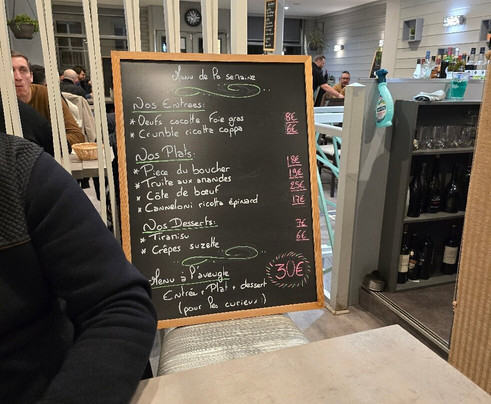 Menu de la semaine
Nos Entrées:
* Oeufs cocotte foie gras 8€
* Crumble ricotta coppa 6€
Nos Plats:
* Pièce du boucher 18€
* Truite aux amandes 19€
* Côte de bœuf 25€
* Canneloni ricotta épinard 17€
Nos Desserts:
* Tiramisu 7€
* Crêpes suzette 6€
Menu à l'aveugle 30€
Entrée + Plat + dessert
(pour les curieux!)